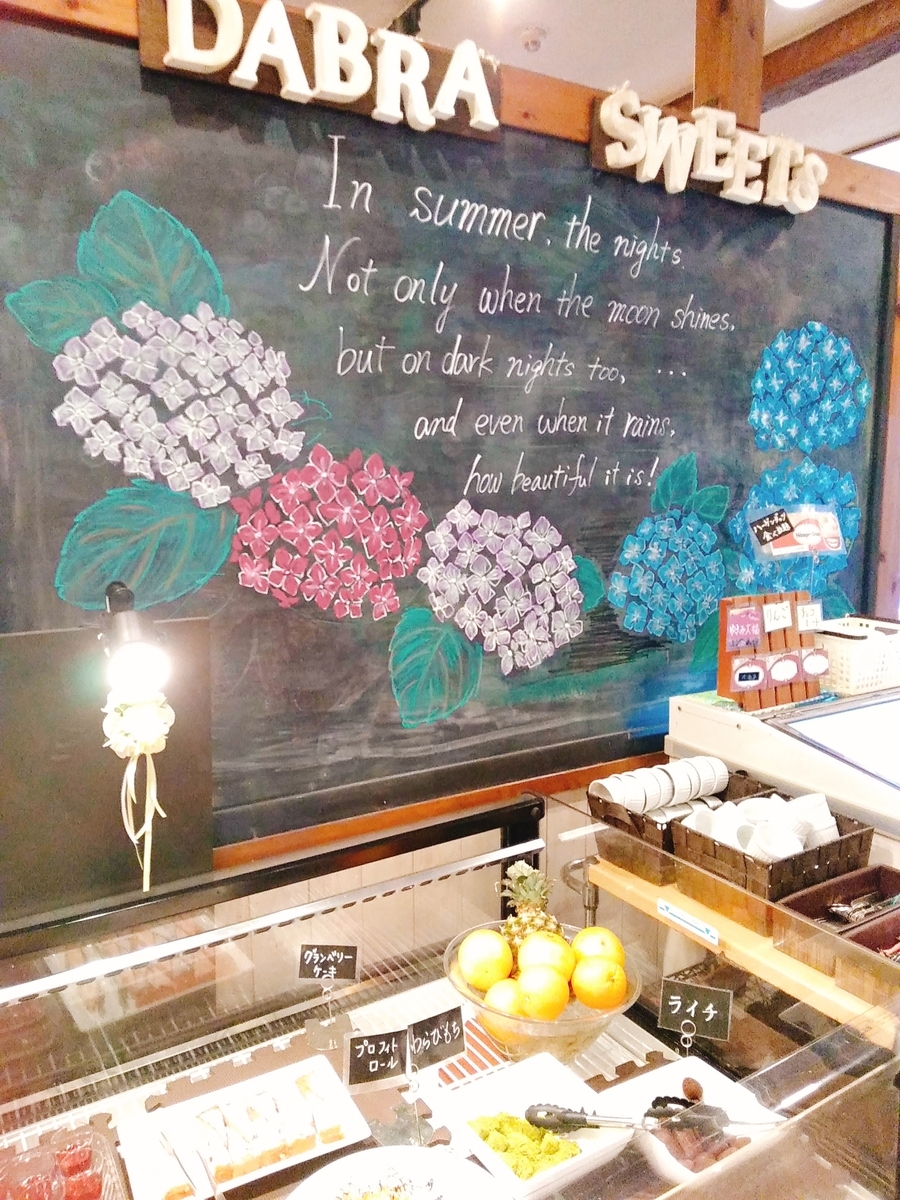 DABRA
SWEETS
In summer, the nights.
Not only when the moon shines,
but on dark nights too, ...
and even when it rains,
how beautiful it is!
ハーゲンダッツ
食べ放題
りんご
クランベリー
ケーキ
プロフィト
ロール
わらびもち
ライチ